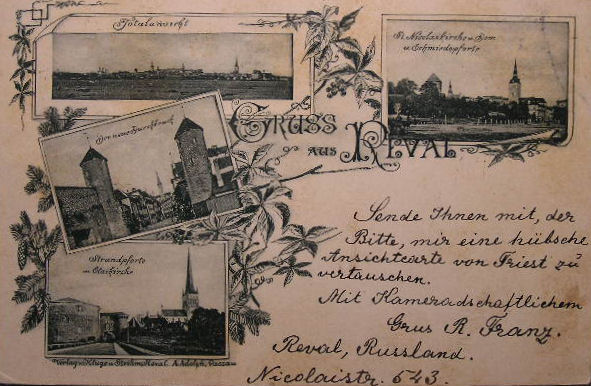 Totalansicht
St. Nicolaikirche u. Dom
u. Schmiedepforte
Der neue Durchbruch
GRUSS
AUS REVAL
Strandpforte
u. Olaikirche
Sende Ihnen mit, der
Bitte, mir eine hübsche
Ansichtcarte von Triest zu
vertauschen.
Mit Kameradschaftlichem
Grus R. Franz.
Reval, Russland.
Nicolaistr. 643.
Verlag v. Kluge u. Ströhm, Reval. A. Adolph, Passau